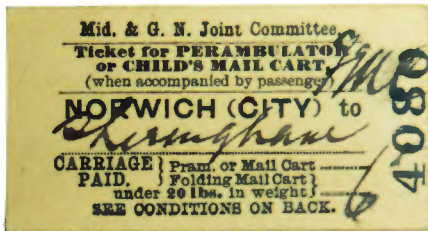 Mid. & G. N. Joint Committee
Ticket for PERAMBULATOR
OR CHILD'S MAIL CART
(when accompanied by passenger)
NORWICH (CITY) to
Sheringham
CARRIAGE } Pram. or Mail Cart
PAID, } Folding Mail Cart }
under 20 lbs. in weight }
6
SEE CONDITIONS ON BACK.
4080